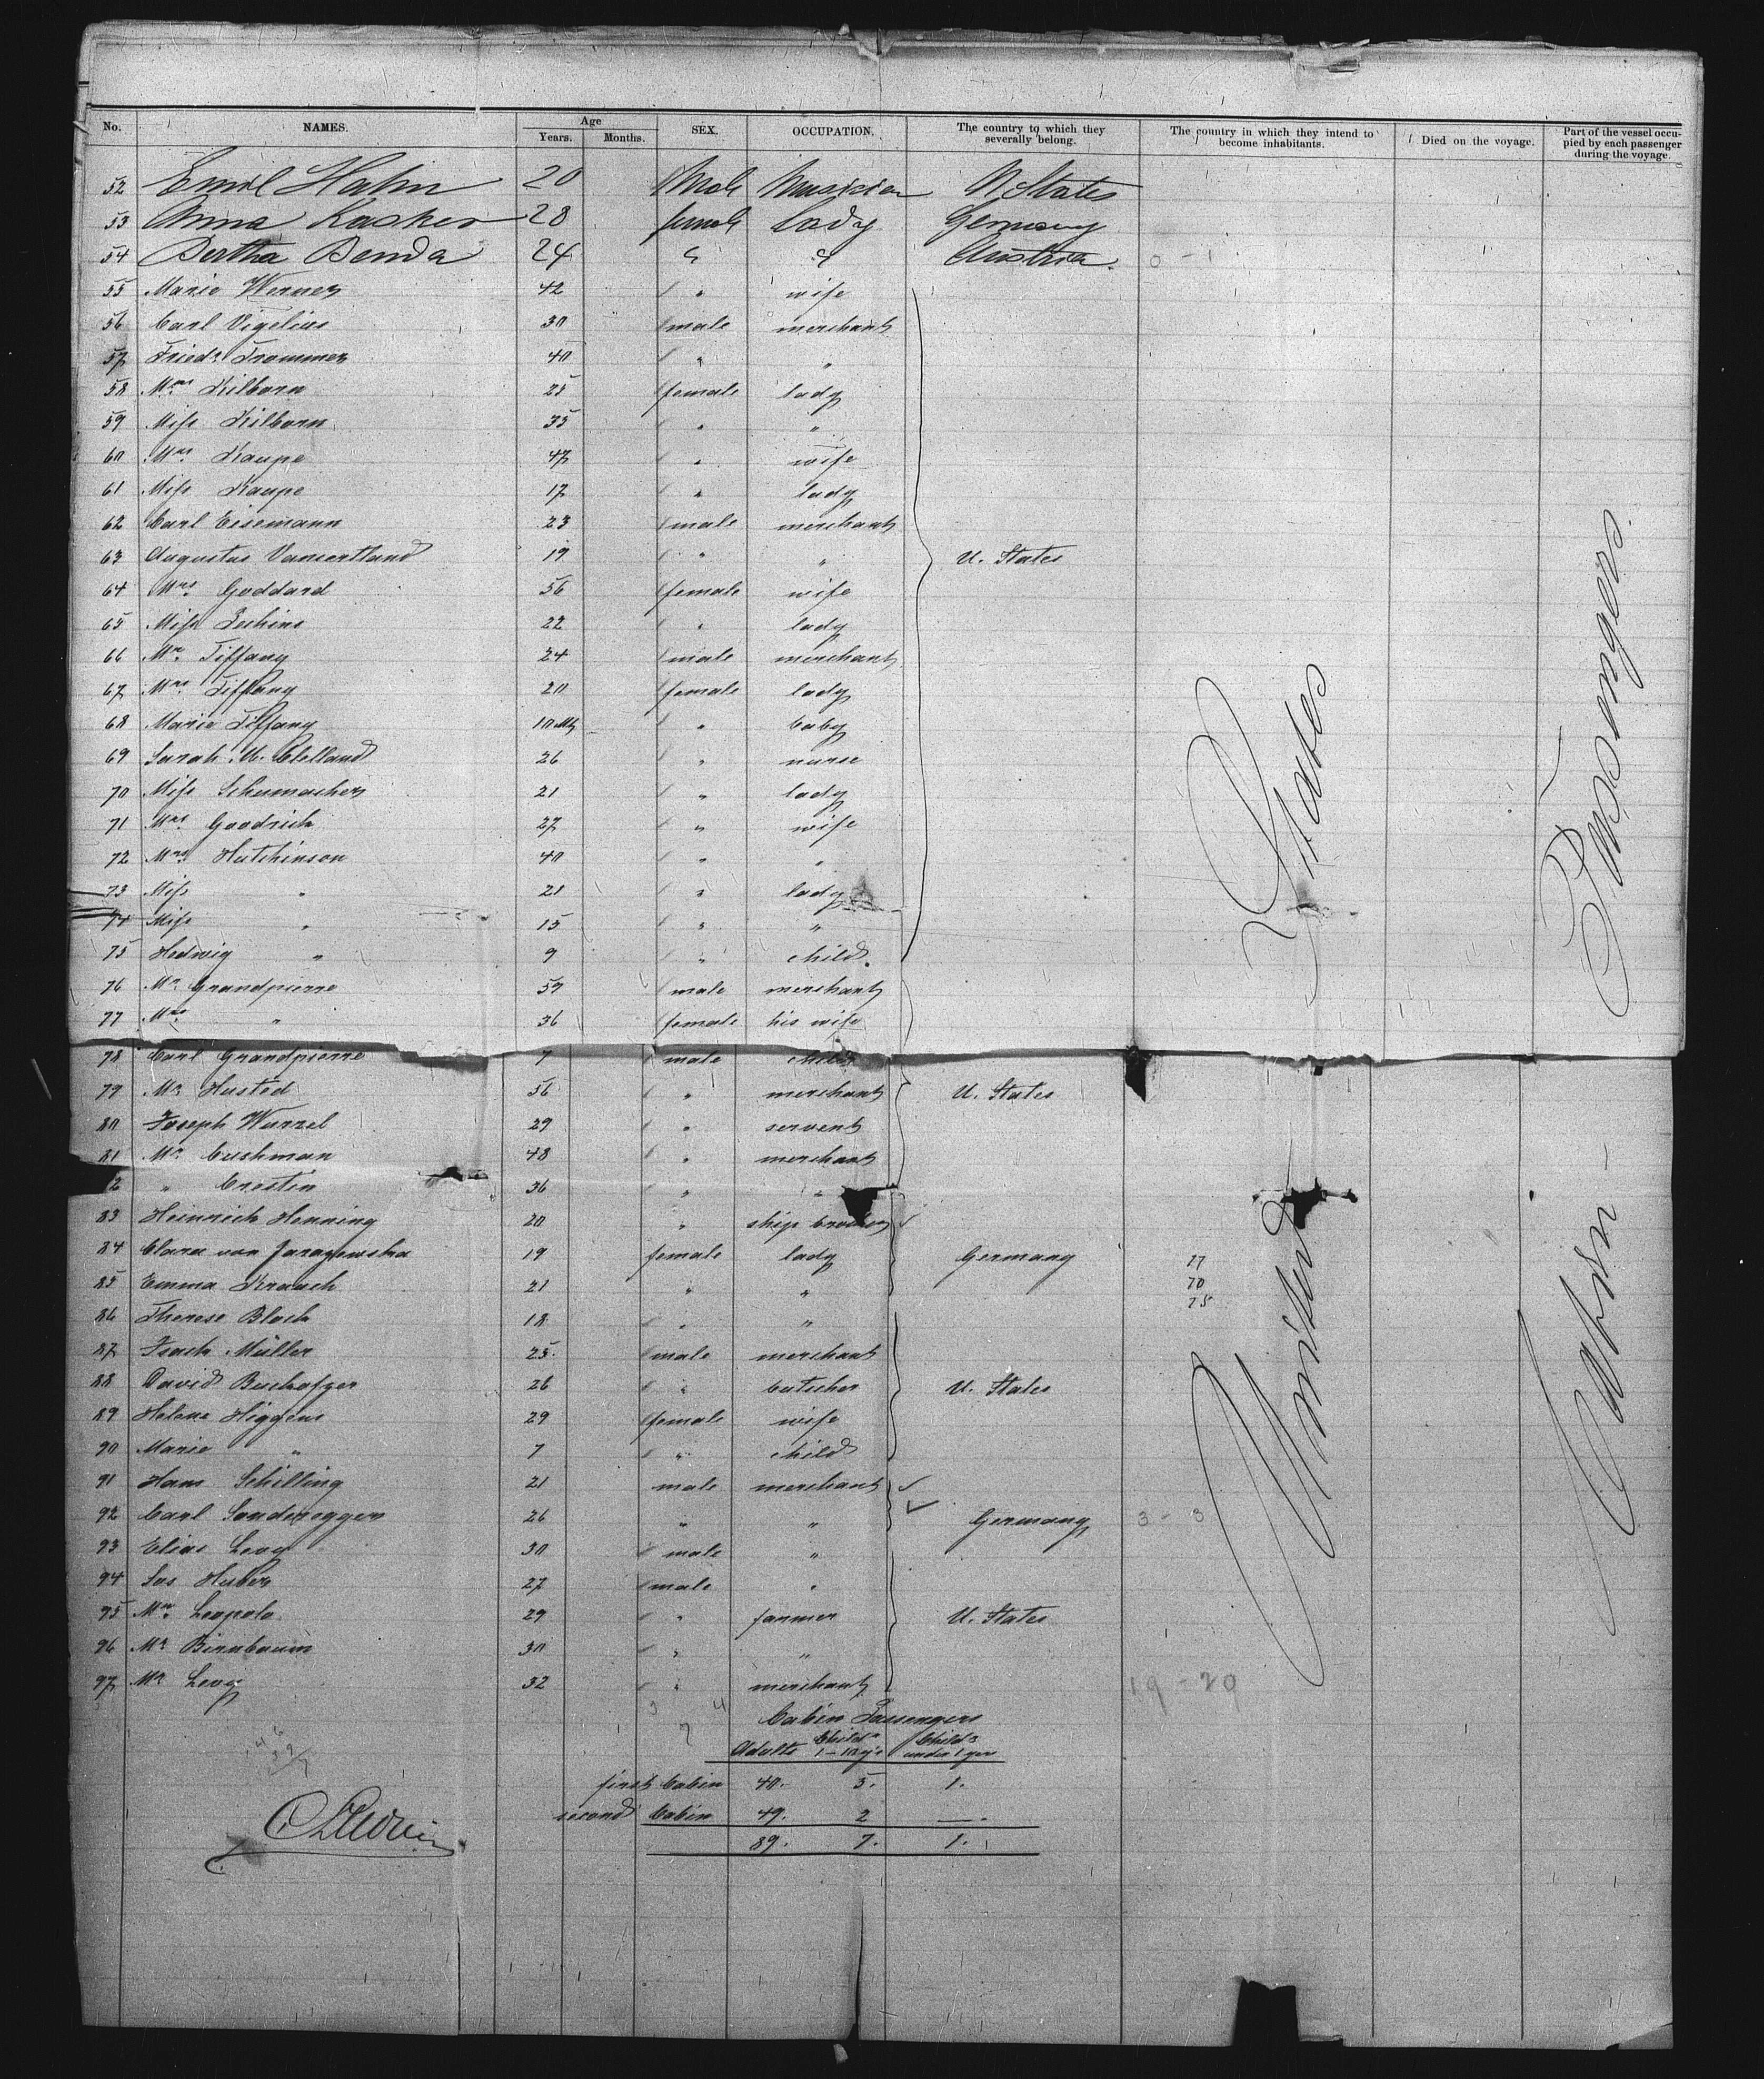 No. NAMES. Age Years. Months. SEX. OCCUPATION. The country to which they severally belong. The country in which they intend to become inhabitants. Died on the voyage. Part of the vessel occupied by each passenger during the voyage.
52 Emil Hahn 20 Male Musician U States
53 Anna Kasker 28 female Lady Germany
54 Bertha Benda 24 " " Austria. 0 - 1
55 Marie Werner 42 " wife
56 Carl Vigelius 30 male merchant
57 Friedr. Trommer 40 " "
58 Mrs. Kilborn 25 female lady
59 Miss Kilborn 35 " "
60 Mrs. Kaupe 47 " wife
61 Miss Kaupe 17 " lady
62 Carl Eisemann 23 male merchant
63 Augustus Vansertland 19 " " U. States
64 Mrs. Goddard 56 female wife
65 Miss Jeshins 22 " lady
66 Mr. Tiffany 24 male merchant
67 Mrs. Tiffany 20 female lady
68 Marie Tiffany 10 Mts " baby
69 Sarah Mc. Clelland 26 " nurse
70 Miss Schumacher 21 " lady
71 Mrs. Goodrich 27 " wife
72 Mrs. Hutchinson 40 " "
73 Miss " 21 " lady
74 Miss " 15 " "
75 Hedwig " 9 " child.
76 Mr. Grandpierre 59 male merchant
77 Mrs. " 36 female his wife
78 Carl Grandpierre 7 male child
79 Mr. Husted 56 " merchant U. States
80 Joseph Wurzel 29 " servent
81 Mr. Cushman 48 " merchant
2 " Crestin 36 " "
83 Heinrich Henning 20 " ship broker
84 Clara von 19 female lady Germany 77
85 Emma Kraach 21 " " 70
86 Therese Bloch 18 " " 75
87 Isach Müller 25. male merchant
88 David Buchofzer 26 " butcher U. States
89 Helene Higgens 29 female wife
90 Marie " 7 " child
91 Hans Schilling 21 male merchant
92 Carl Sonderegger 26 " " Germany 3 - 3
93 Elias Levy 30 male "
94 Jos Huber 27 male "
95 Mr. Leopold 29 " farmer U. States
96 Mr. Birnbaum 30 " "
97 Mr. Levy 32 " merchant 19 - 20
United States
Cabin Passengers
Cabin Passengers
Adults Childr. 1-10 y's Childr. under 1 year
first Cabin 40. 5. 1.
second Cabin 49. 2 —.
89. 7. 1.